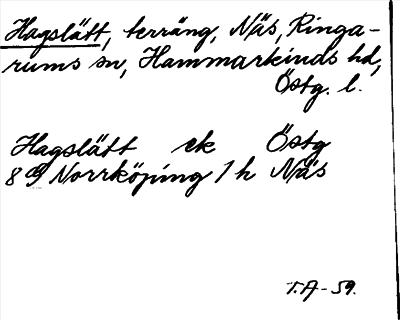 Hagslätt, terräng, Näs, Ringa-
rums sn, Hammarkinds hd,
Östg. l.
Hagslätt ek Östg
8 G Norrköping 1 h Näs
T.A-59.